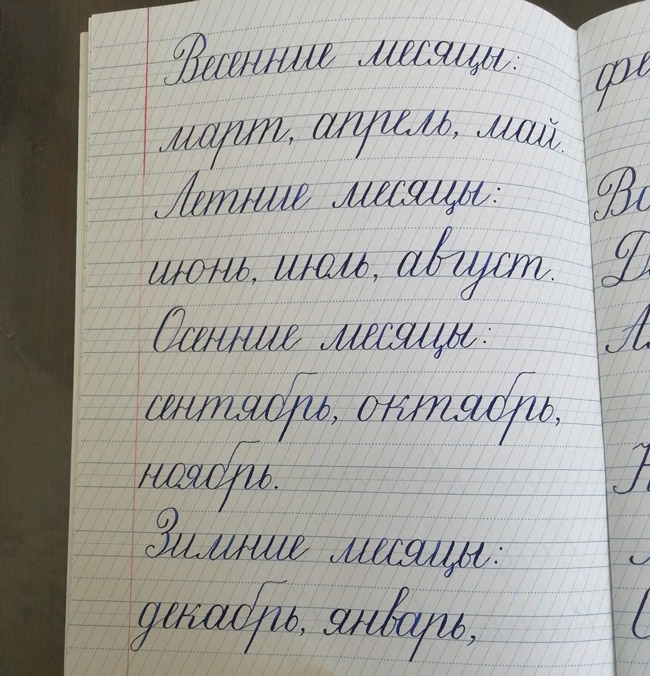 Весенние месяцы:
март, апрель, май.
Летние месяцы:
июнь, июль, август.
Осенние месяцы:
сентябрь, октябрь,
ноябрь.
Зимние месяцы:
декабрь, январь,
фе